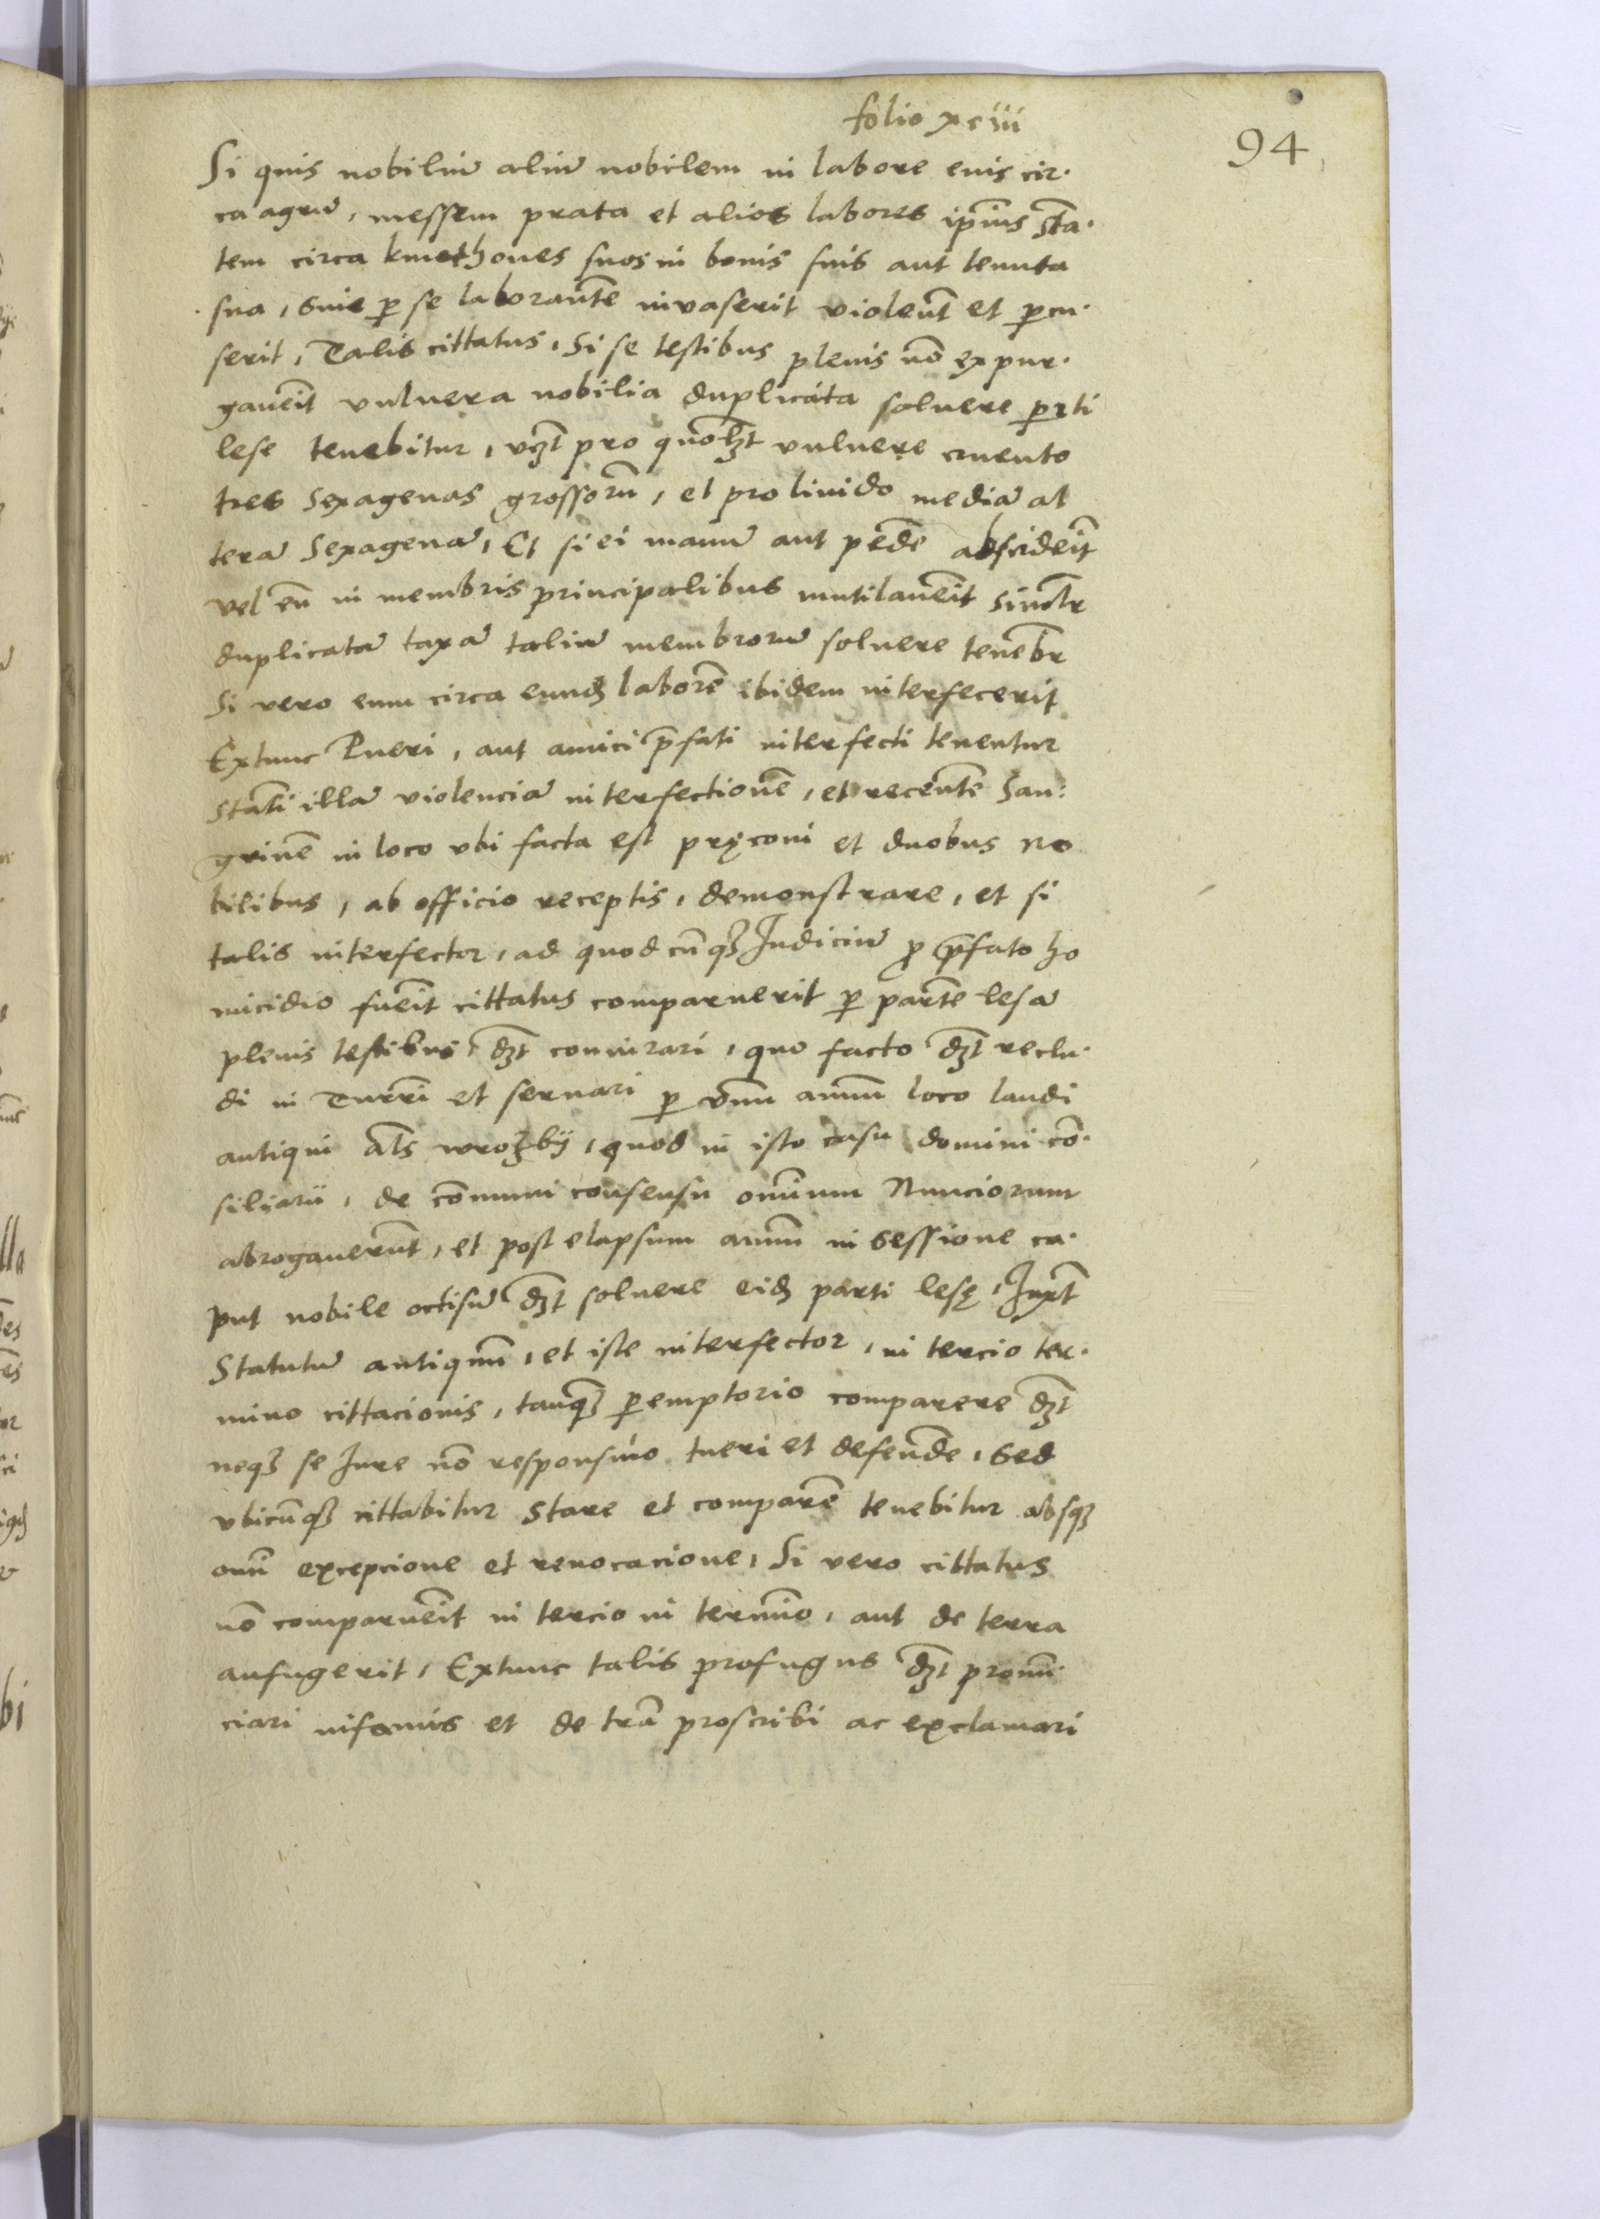 folio xciiii
94
Si quis nobiliū aliū nobilem in labore euis cir-
ca agrū, messem prata et alios labores ip̄ius sta-
tem circa kmethones suos in bonis suis aut tenuta
sua, siue p̱ se laborantē inuaserit violent̄ et p̱cu-
serit, Talis cittatus, Si se testibus plenis nō expur-
gauerit vulnera nobilia duplicata soluere parti
lese tenebitur, vꝫt pro quolꝫt vulnere cruento
tres sexagenas grossorū, et pro liuido mediā al
terā sexagenā, Et si ei manū aut pedē absciderit
vel eū in membris principalibus mutilauerit simlr̄
duplicatā taxā taliū membrorū soluere tenebr̄
Si vero eum circa eundꝫ laborē ibidem interfecerit
Extunc Pueri, aut amici p̄fati interfecti tenentur
statī illā violenciā interfectionē, et recentē San-
gwinē in loco vbi facta est pręconi et duobus no
bilibus, ab officio receptis, demonstrare, et si
talis interfector, ad quodcūqꝫ Iudiciū ꝓ p̄fato ho
micidio fuerit cittatus comparuerit p̱ partē lesā
plenis testibus dꝫt conuinci, quo facto dꝫt reclu-
di in Turrī et seruari p̱ vnū annū loco laudi
antiqui als̄ wrozby, quod in isto casu domini cō-
siliarii, de cōmuni consensu omnium Nunciorum
abrogauerūt, et post elapsum annū in sessione ca-
put nobile occisū dꝫt soluere eidꝫ parti lesę, Iuxt̄
Statutū antiquū, et iste interfector, in tercio ter-
mino cittacionis, tanqꝫ p̱emptorio comparere dꝫt
neqꝫ se Iure nō responsiuo tueri et defendē, Sed
vbicūqꝫ cittabitur stare et comparē tenebitur absqꝫ
omī excepcione et reuocacione, Si vero cittatus
nō comparuerit in tercio in termīo, aut de terra
aufugerit, Extunc talis profugus dꝫt pronū-
ciari infamis et de trā proscribi ac exclamari